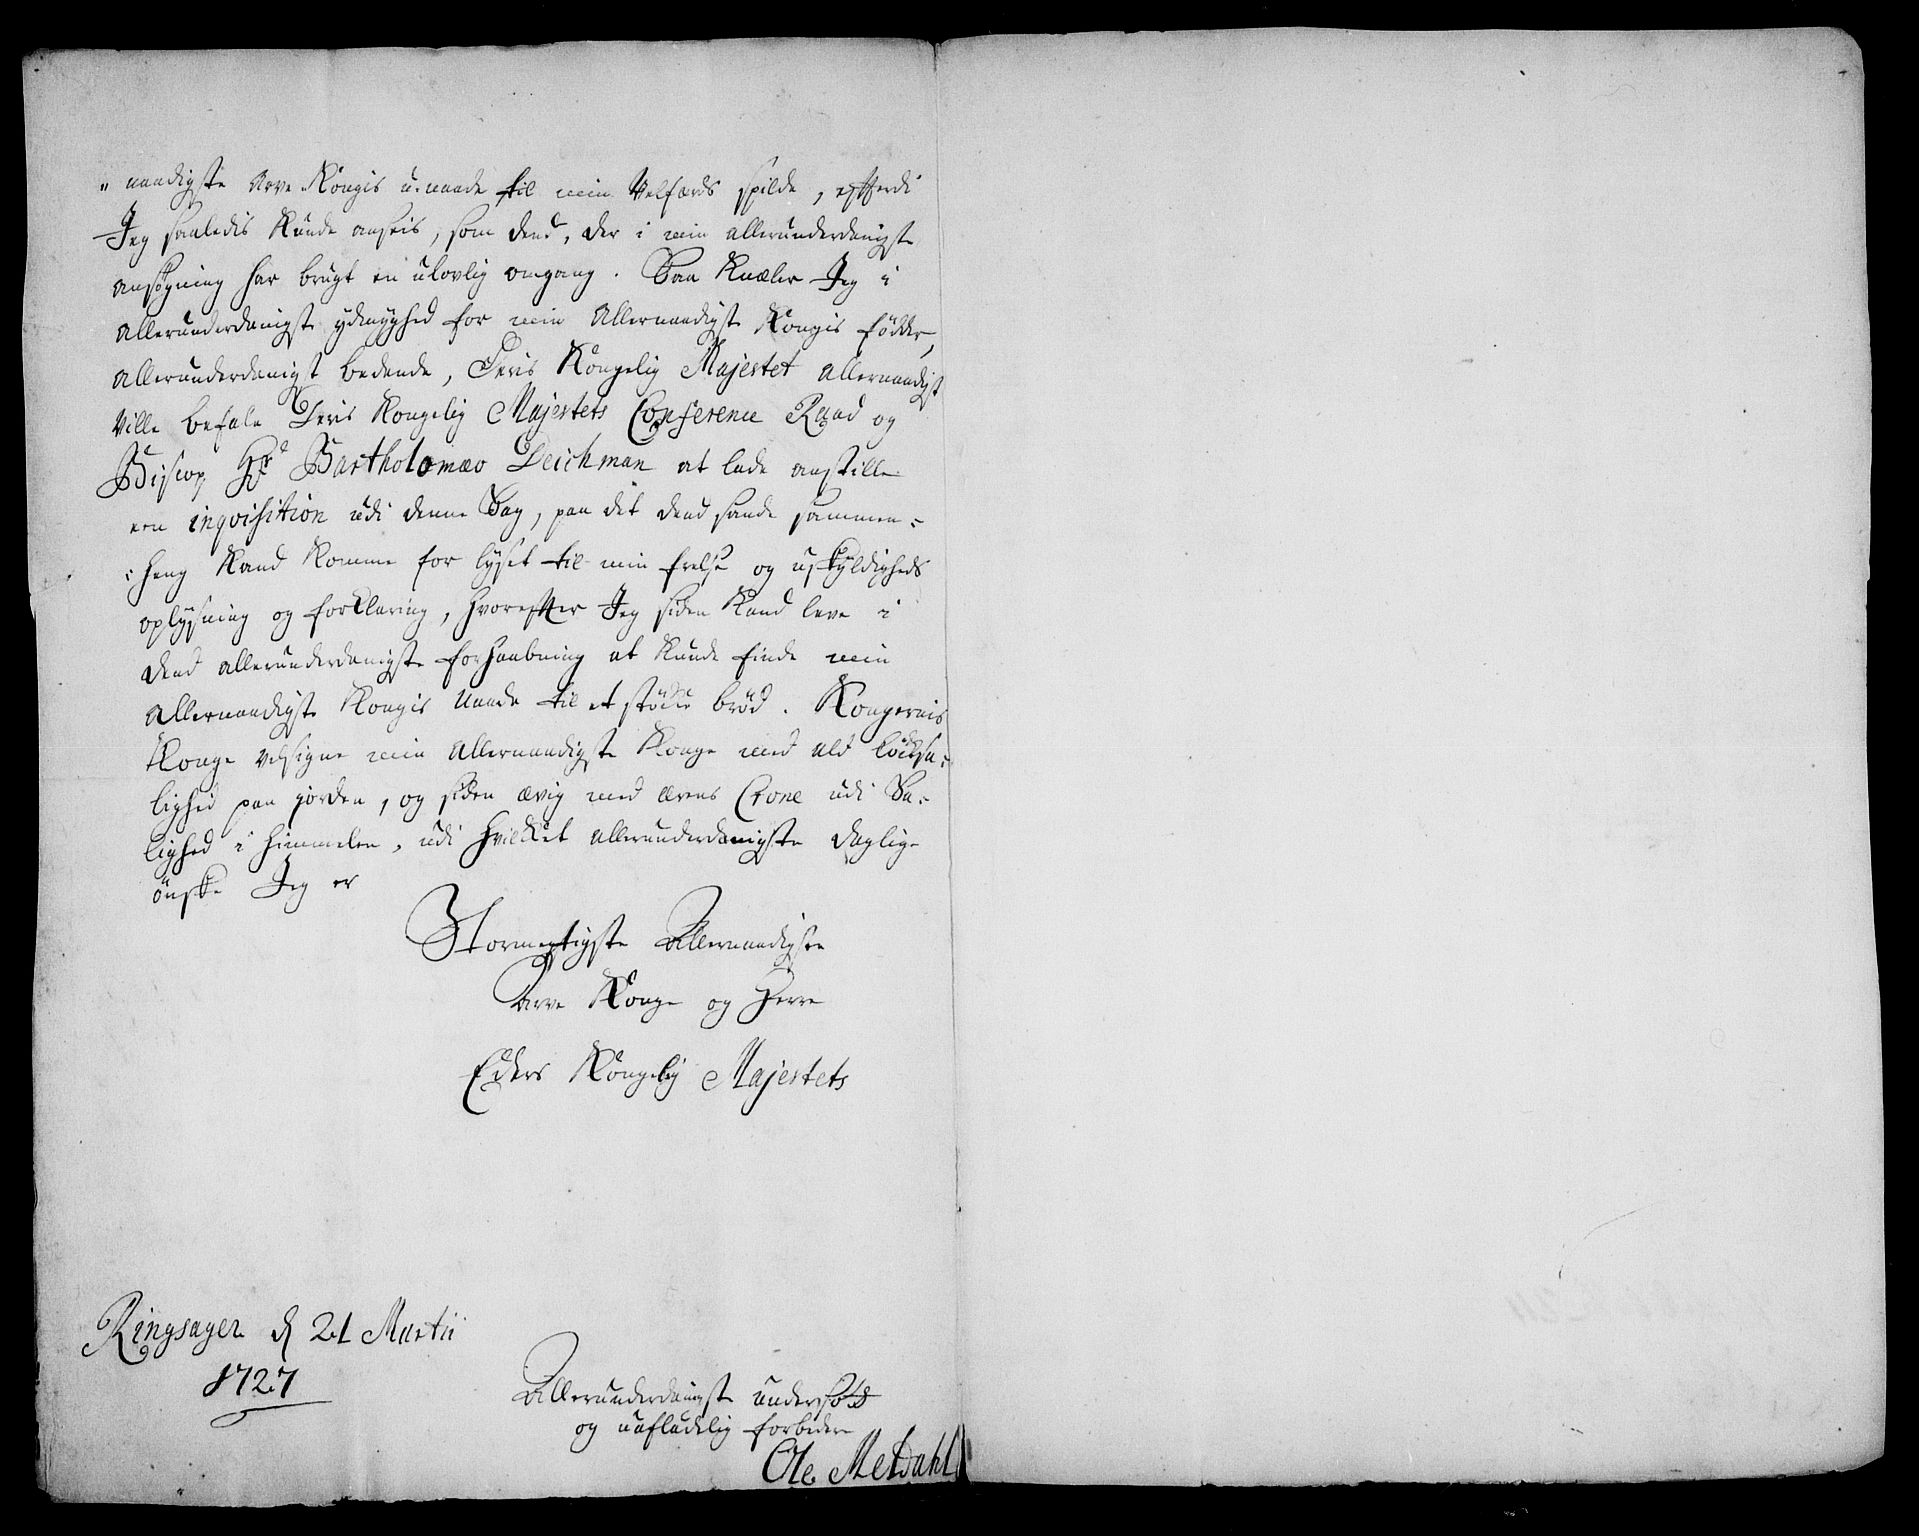 " naadigste Arve Kongis u-naade til min Velfærds spilde, efterdi
Jeg saaledis kunde anseis, som dend, der i min allerunderdanigste
ansøgning har brugt en ulovlig omgang. Saa knæler Jeg i
allerunderdanigst ydmyghed for min allernaadigste Kongis födder,
allerunderdanigst bedende, Deris Kongelig Majestet allernaadigst
ville befale Deris Kongelig Majestets Conference Raad og
Biscop Hr Bartholomæo Deichman at lade anstille
een inqvisition udi denne Sag, paa det dend sande sammen-
heng kand komme for lyset til min frelse og uskyldigheds
oplysning og forklaring, hvorefter Jeg siden kand leve i
dend allerunderdanigste forhaabning at kunde finde min
allernaadigste Kongis Naade til et støcke brød. Kongernis
Konge velsigne min allernaadigste Konge med ald löcksa-
lighed paa jorden, og siden ævig med ærens Crone udi Sa-
lighed i Himmelen, udi hvilket allerunderdanigste daglige
önske Jeg er
Stormegtigste Allernaadigste
Arve Konge og Herre
Eders Kongelig Majestets
Ringsager d 21 Martii
1727
Allerunderdanigst undersøtt
og uafladelig forbedere
Ole Meldahl